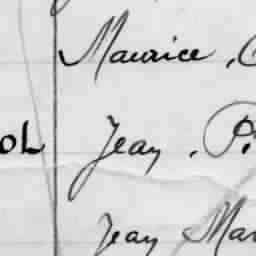 Maurice,
OL Jean, P.
Jean Mar